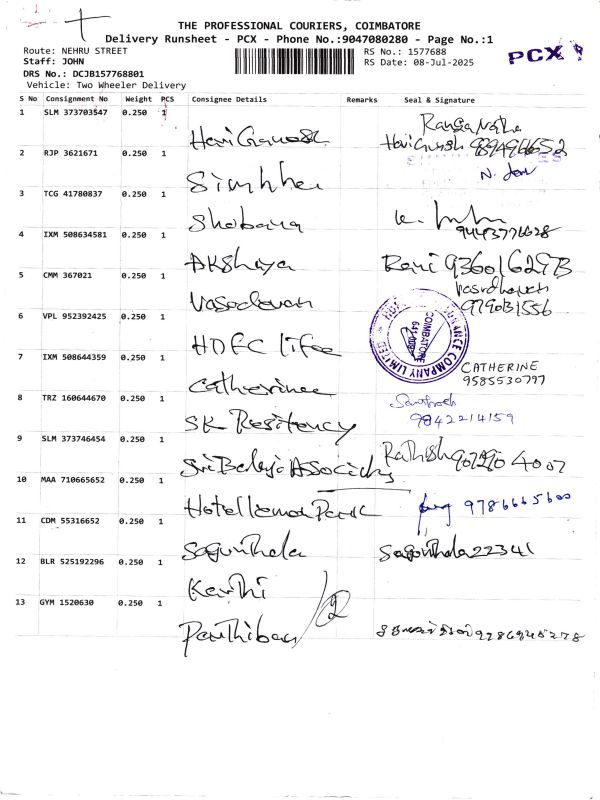 THE PROFESSIONAL COURIERS, COIMBATORE
Delivery Runsheet - PCX - Phone No.:9047080280 - Page No.:1
Route: NEHRU STREET
RS No.: 1577688
PCX
Staff: JOHN
RS Date: 08-Jul-2025
DRS No.: DCJB157768801
Vehicle: Two Wheeler Delivery
S No Consignment No Weight PCS Consignee Details Remarks Seal & Signature
1 SLM 373703547 0.250 1 Hari Ganesh
2 RJP 3621671 0.250 1 Simhha
3 TCG 41780837 0.250 1 Shobana
4 IXM 508634581 0.250 1 Akshaya 9443776628
5 CMM 367021 0.250 1 Vasudevan Rani 9360162973
6 VPL 952392425 0.250 1 HDFC life COIMBATORE
COMPANY LIMITED
7 IXM 508644359 0.250 1 Catherinee CATHERINE
9585530797
8 TRZ 160644670 0.250 1 SK Resitency Santhosh
9842214159
9 SLM 373746454 0.250 1 Sri Balaji
10 MAA 710665652 0.250 1 9786665600
11 CDM 55316652 0.250 1 Sagunthala Sagunthala 22341
12 BLR 525192296 0.250 1 Karthi
13 GYM 1520630 0.250 1 Parthiban